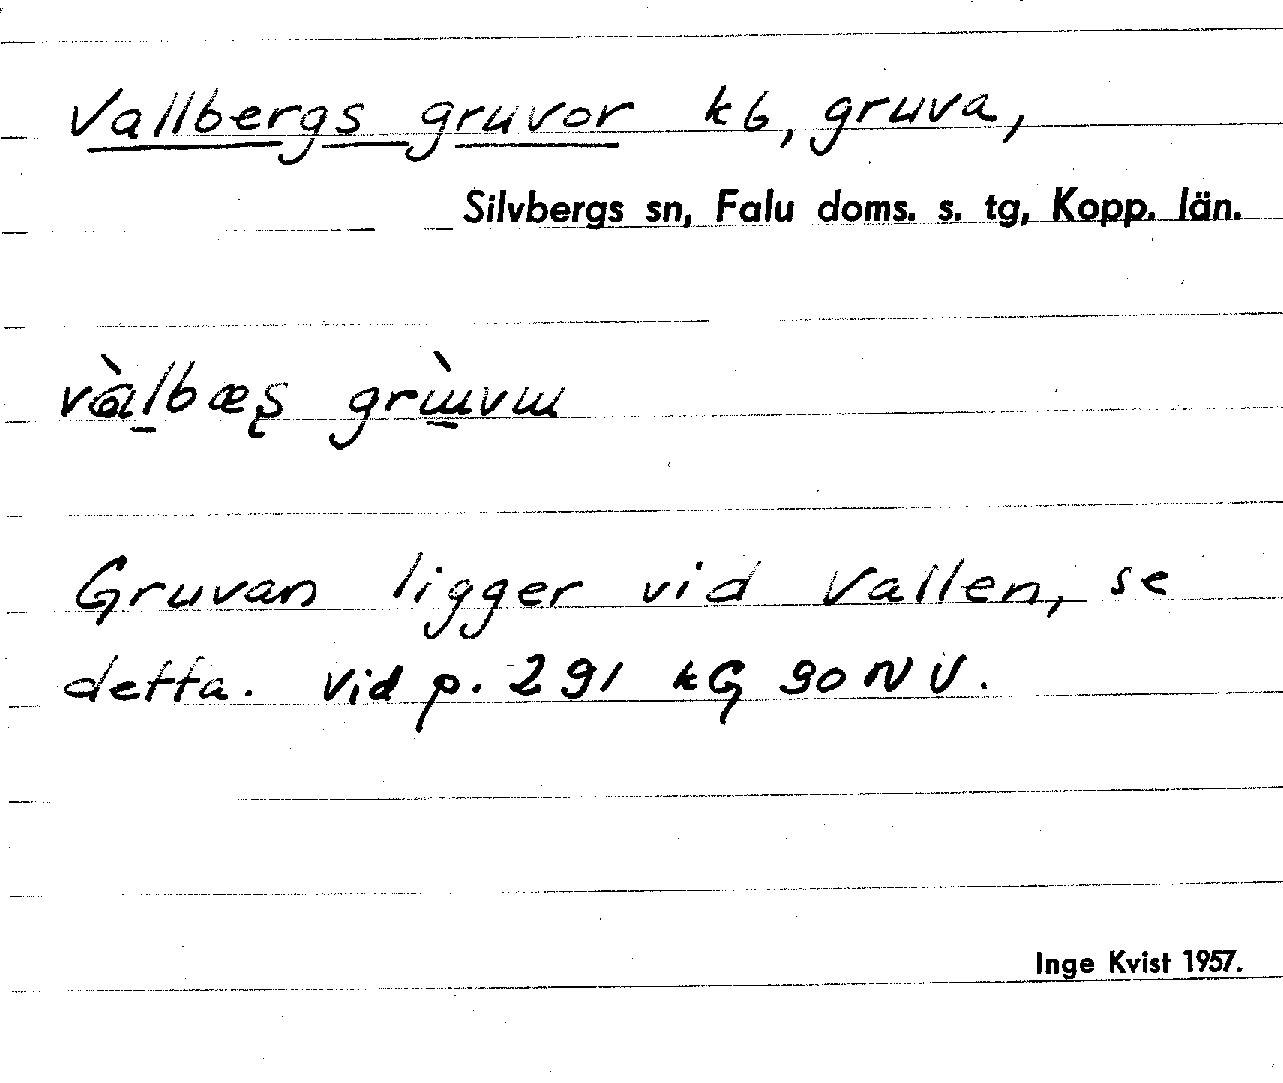 Vallbergs gruvor kb, gruva,
Silvbergs sn, Falu doms. s. tg, Kopp. län.
Gruvan ligger vid Vallen, se
detta. Vid p. 291 kG 90 NV.
Inge Kvist 1957.